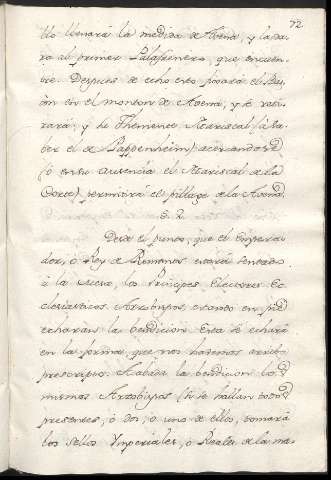 72
llo llenará la medida de Avena, y la da-
rá al primer Palafrenero, que encuen-
tre. Despues de echo esto posará el Bas-
ton en el monton de Avena, y se reti-
rará, y su Theniente Mariscal (á sa-
ber el de Pappenheim) acercandose
(ó en su ausencia el Mariscal de la
Corte) permitirá el pillage de la Avena.
§. 2.
Desde el punto, que el Empera-
dor, ó Rey de Romanos estará sentado
á la Mesa, los Principes Electores Ec-
clesiasticos Arzobispos, estando en pie
echaran la bendicion. Esta se echará
en la forma, que nos hademos arriba
prescripto. Acabada la bendicion los
mismos Arzobispos (si se hallan todos
presentes, ó dos, ó uno de ellos, tomará
los sellos Imperiales, ó Reales de la ma-